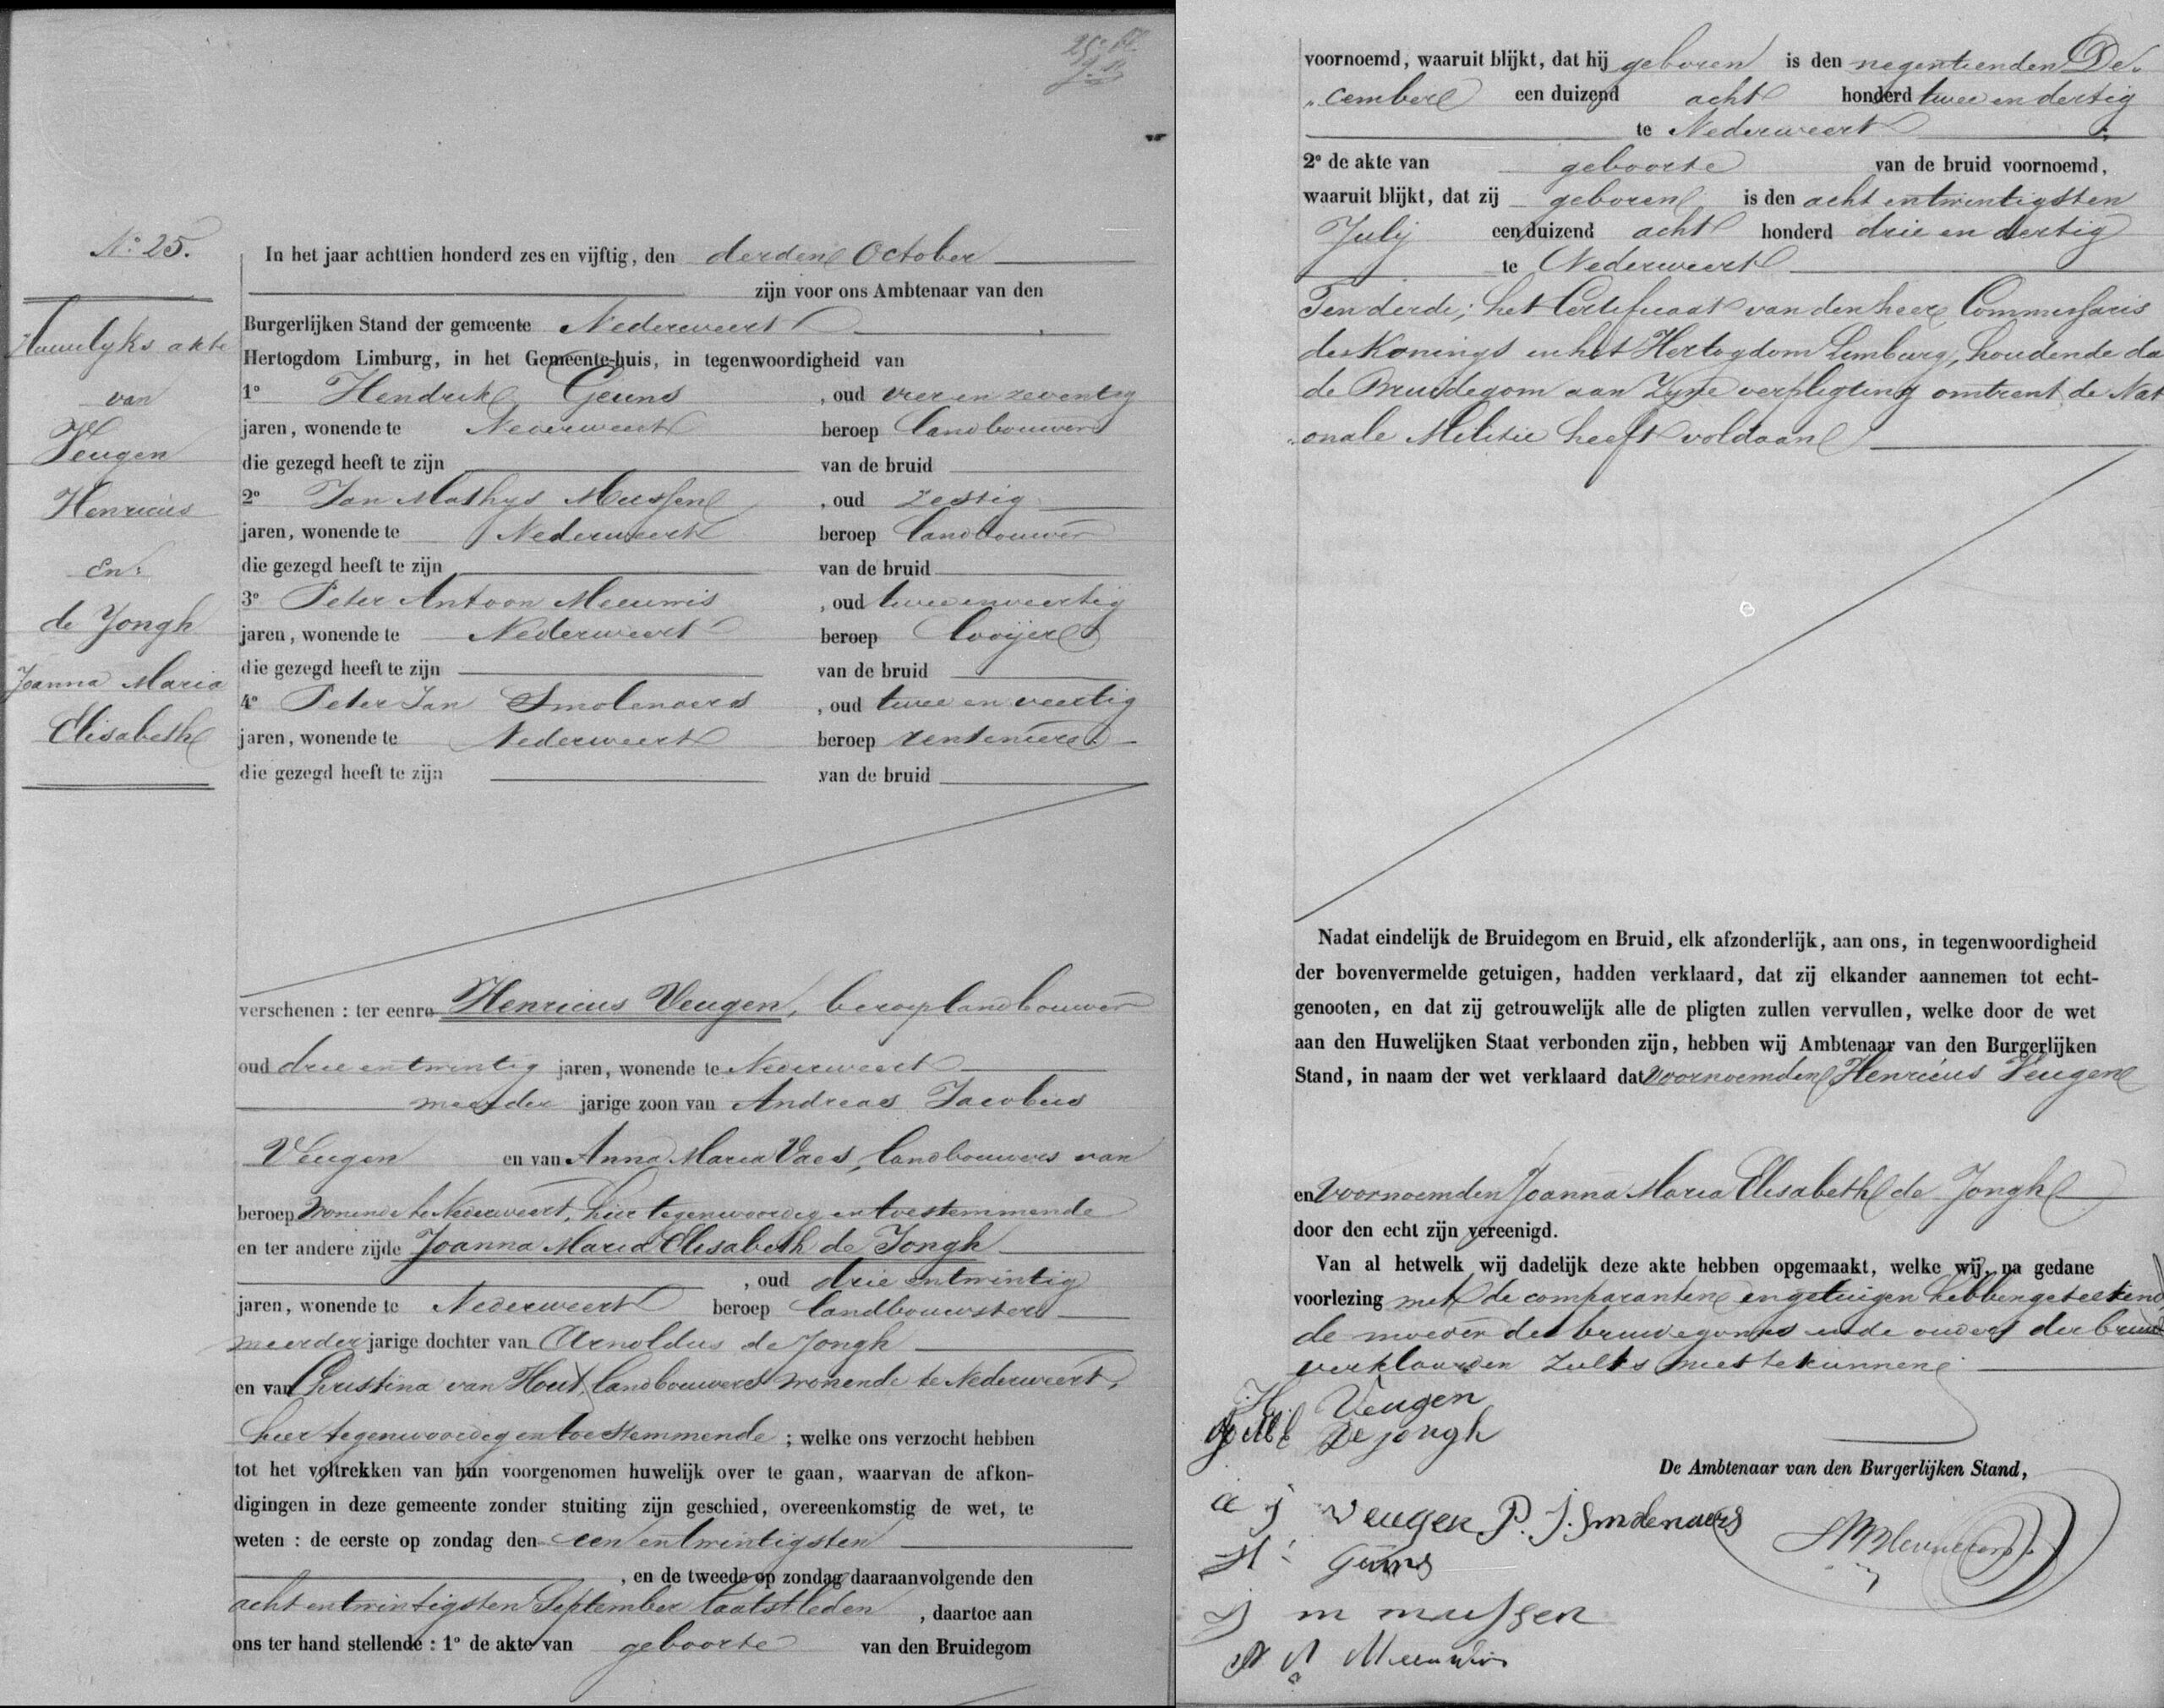 N.o 25.
Huwelyks akte
van
Veugen
Henricus
En:
de Jongh
Joanna Maria
Elisabeth
In het jaar achttien honderd zes en vijftig, den derden October
zijn voor ons Ambtenaar van den
Burgerlijken Stand der gemeente Nederweert
Hertogdom Limburg, in het Gemeente-huis, in tegenwoordigheid van
1o Hendrik Geuns , oud vier en zeventig
jaren, wonende te Nederweert beroep landbouwer
die gezegd heeft te zijn van de bruid
2o Jan Mathys Meussen , oud zestig
jaren, wonende te Nederweert beroep landbouwer
die gezegd heeft te zijn van de bruid
3o Peter Antoon Meeuwis , oud twee en veertig
jaren, wonende te Nederweert beroep looijer
die gezegd heeft te zijn van de bruid
4o Peter Jan Smolenaers , oud twee en veertig
jaren, wonende te Nederweert beroep rentenier
die gezegd heeft te zijn van de bruid
verschenen : ter eenre Henricus Veugen, beroep landbouwer
oud drie en twintig jaren, wonende te Nederweert
meerder jarige zoon van Andreas Jacobus
Veugen en van Anna Maria Vaes, landbouwers van
beroep wonende te Nederweert, hier tegenwoordig en toestemmende
en ter andere zijde Joanna Maria Elisabeth de Jongh
, oud drie en twintig
jaren, wonende te Nederweert beroep landbouwster
meerder jarige dochter van Arnoldus de Jongh
en van Christina van Hout, landbouwers wonende te Nederweert,
hier tegenwoordig en toestemmende ; welke ons verzocht hebben
tot het voltrekken van hun voorgenomen huwelijk over te gaan, waarvan de afkon-
digingen in deze gemeente zonder stuiting zijn geschied, overeenkomstig de wet, te
weten : de eerste op zondag den een en twintigsten
, en de tweede op zondag daaraanvolgende den
acht en twintigsten September laatstleden , daartoe aan
ons ter hand stellende : 1o de akte van geboorte van den Bruidegom
voornoemd, waaruit blijkt, dat hij geboren is den negentienden De-
"cember een duizend acht honderd twee en dertig
te Nederweert ;
2o de akte van geboorte van de bruid voornoemd,
waaruit blijkt, dat zij geboren is den acht en twintigsten
July een duizend acht honderd drie en dertig
te Nederweert
Ten derde; het Certificaat van den heer Commissaris
des Konings in het Hertogdom Limburg, houdende da
de Bruidegom aan zyne verpligting omtrent de Nat
"onale Militie heeft voldaan
Nadat eindelijk de Bruidegom en Bruid, elk afzonderlijk, aan ons, in tegenwoordigheid
der bovenvermelde getuigen, hadden verklaard, dat zij elkander aannemen tot echt-
genooten, en dat zij getrouwelijk alle de pligten zullen vervullen, welke door de wet
aan den Huwelijken Staat verbonden zijn, hebben wij Ambtenaar van den Burgerlijken
Stand, in naam der wet verklaard dat voornoemden Henricus Veugen
en voornoemden Joanna Maria Elisabeth de Jongh
door den echt zijn vereenigd.
Van al hetwelk wij dadelijk deze akte hebben opgemaakt, welke wij, na gedane
voorlezing met de comparanten en getuigen hebben geteekend,
de moeder des bruidegoms en de ouders der bruid
verklaarden zulks niet te kunnen
H. Veugen
de jongh
De Ambtenaar van den Burgerlijken Stand,
a j Veugen P. J. Smolenaers
H: Geuns
J m meussen
P A Meeuwis